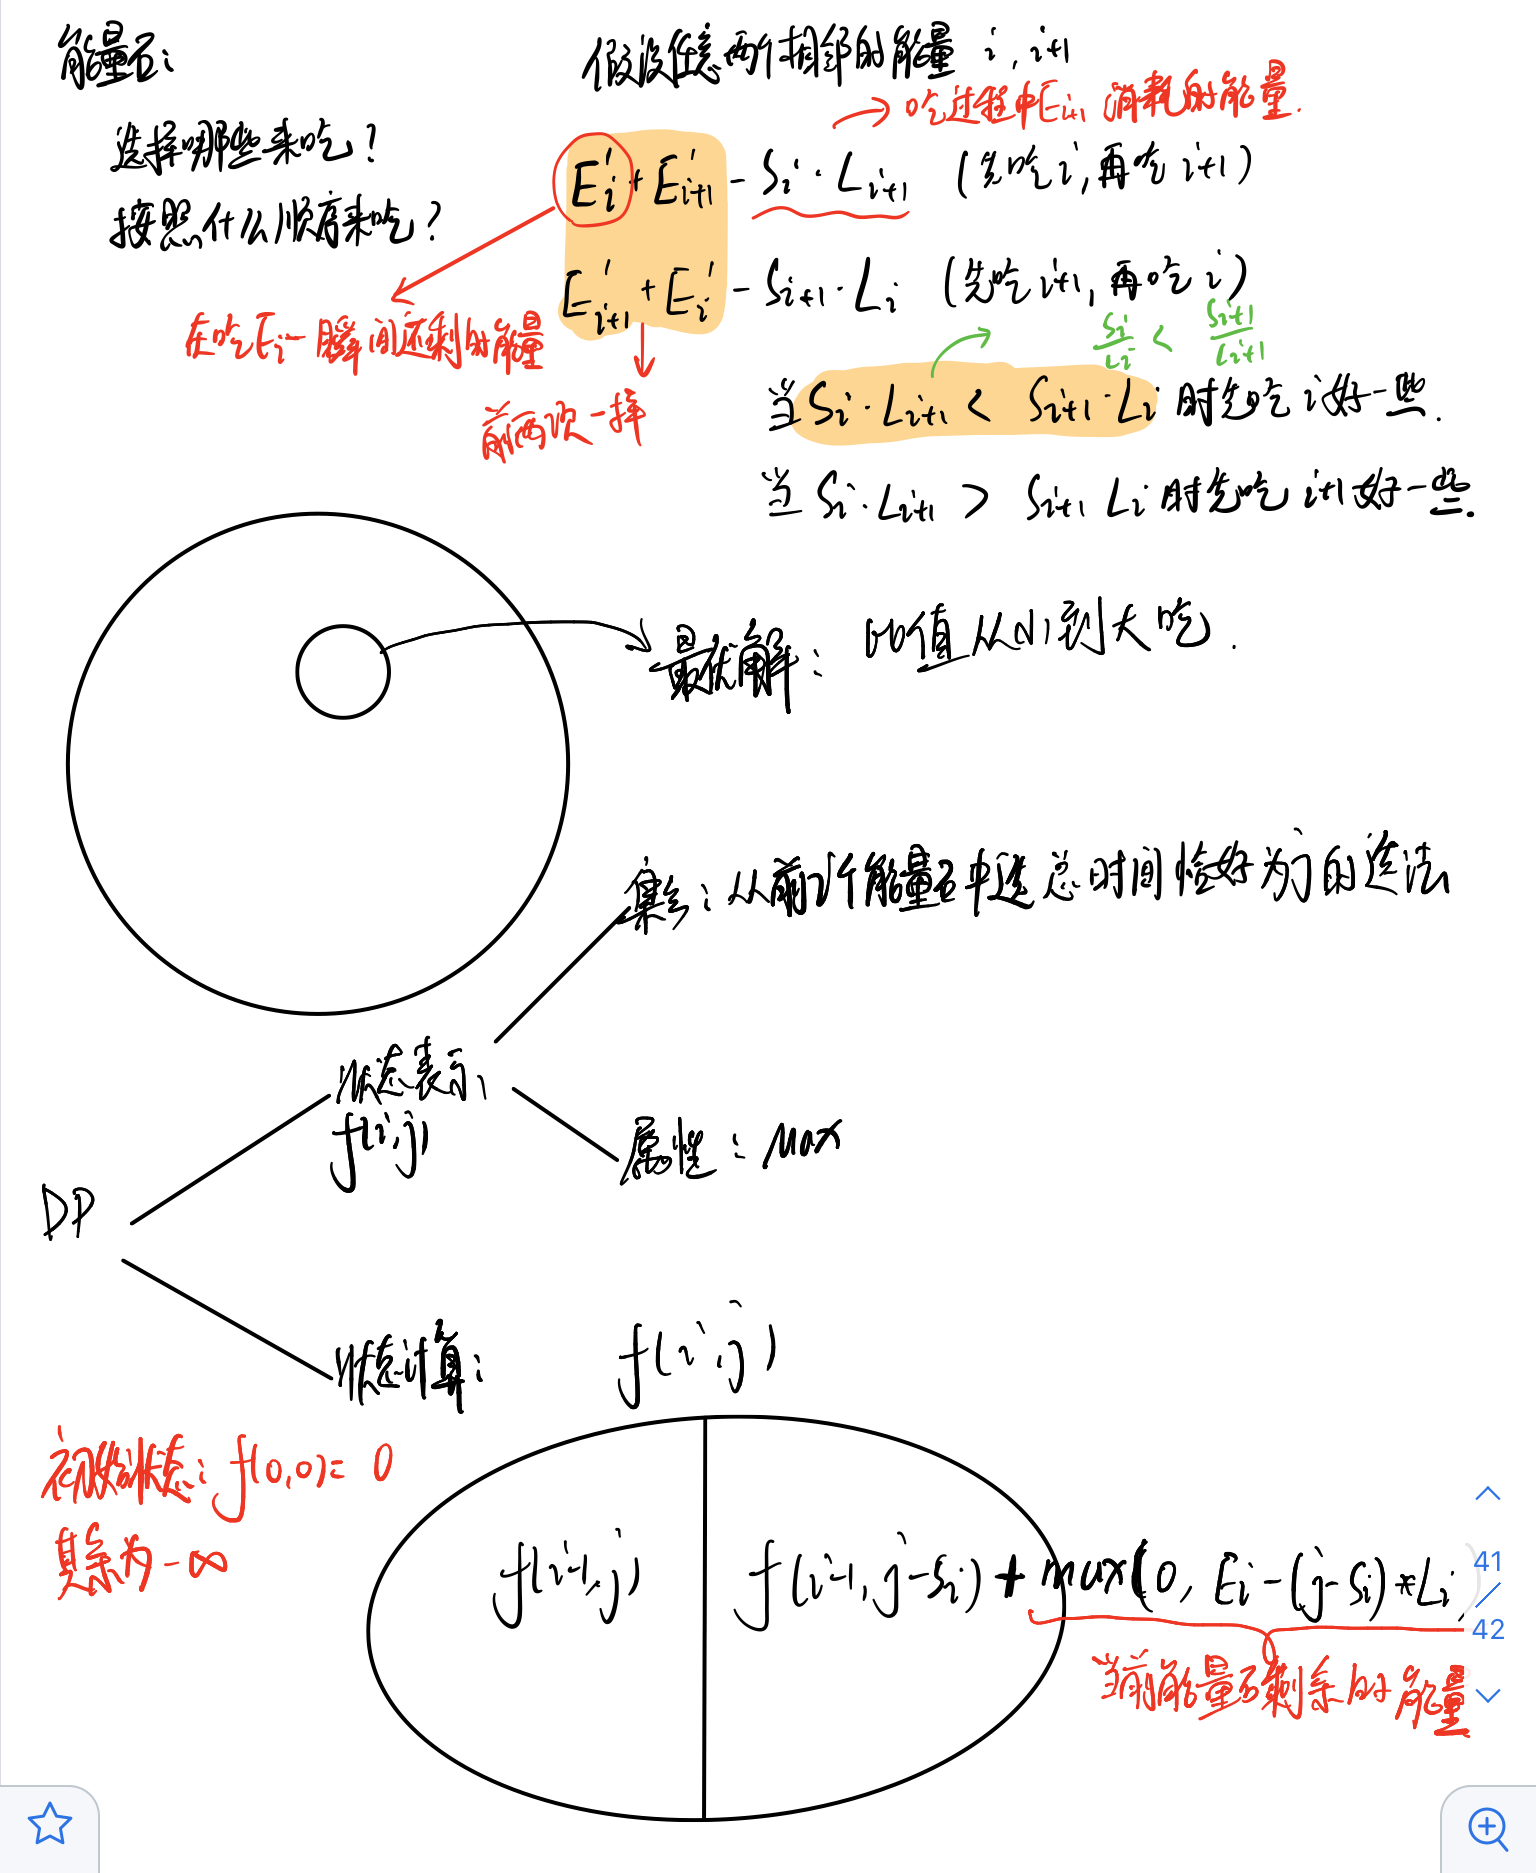 能量石：
选择哪些来吃？
按照什么顺序来吃？
假设任意两个相邻的能量 i, i+1
→吃过程中Ei+1 消耗的能量.
E'i + E'i+1 - Si · Li+1 (先吃i, 再吃 i+1)
E'i+1 + E'i - Si+1 · Li (先吃 i+1, 再吃 i)
在吃Ei一瞬间还剩的能量
前两项一样
Si/Li < Si+1/Li+1
当 Si · Li+1 < Si+1 · Li 时先吃 i 好一些.
当 Si · Li+1 > Si+1 Li 时先吃 i+1 好一些.
最优解： 比值从小到大吃.
集合：从前i个能量石中选 总时间恰好为j的选法
状态表示：
f(i,j)
属性：Max
DP
状态计算：
f(i,j)
初始状态：f(0,0)= 0
其余为 -∞
f(i-1,j)
f(i-1, j-Si) + max(0, Ei-(j-Si)*Li)
当前能量石剩余的能量
41
/
42